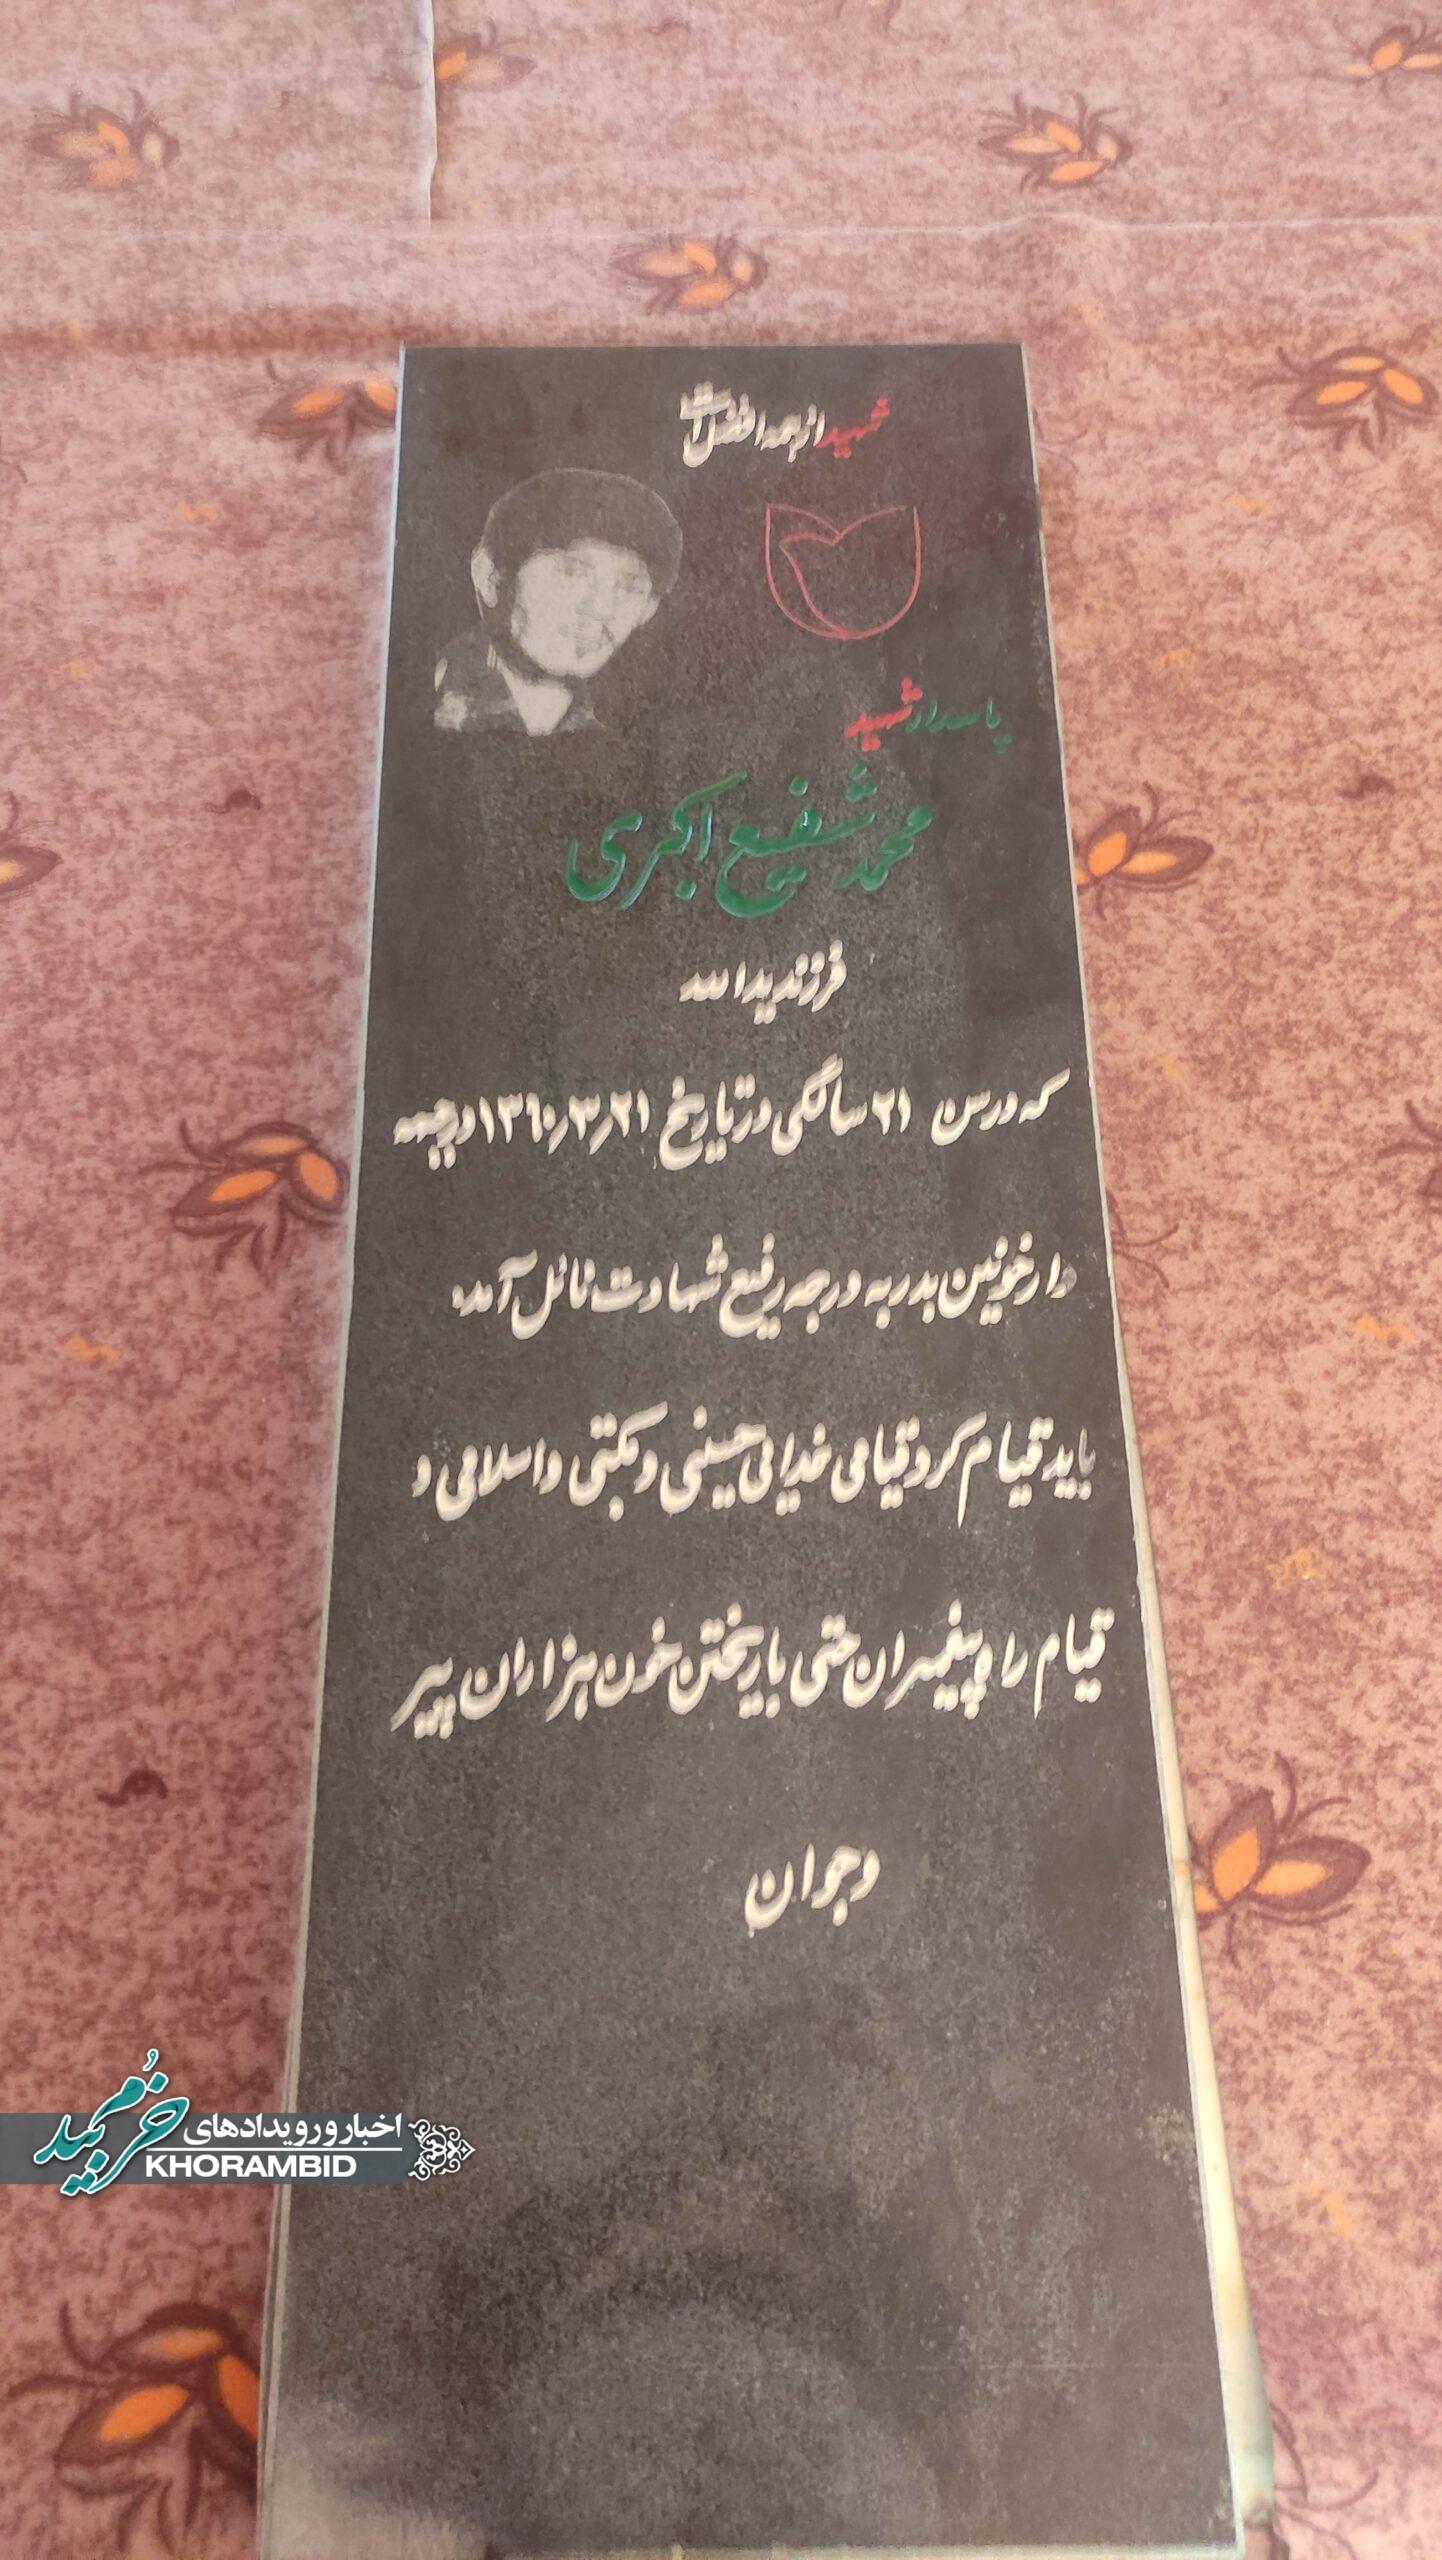 شهید از همه افضل است
پاسدار شهید
محمد شفیع اکبری
فرزند یدالله
که در سن ۲۱ سالگی در تاریخ ۱۳۶۰٫۳٫۲۱ در جبهه
دارخونین بدر به درجه رفیع شهادت نائل آمد.
باید قیام کرد قیامی خدائی حسینی و مکتبی و اسلامی و
قیام را و پیغمبران حتی با ریختن خون هزاران پیر
و جوان
اخبار و رویدادهای خرمبید
KHORAMBID